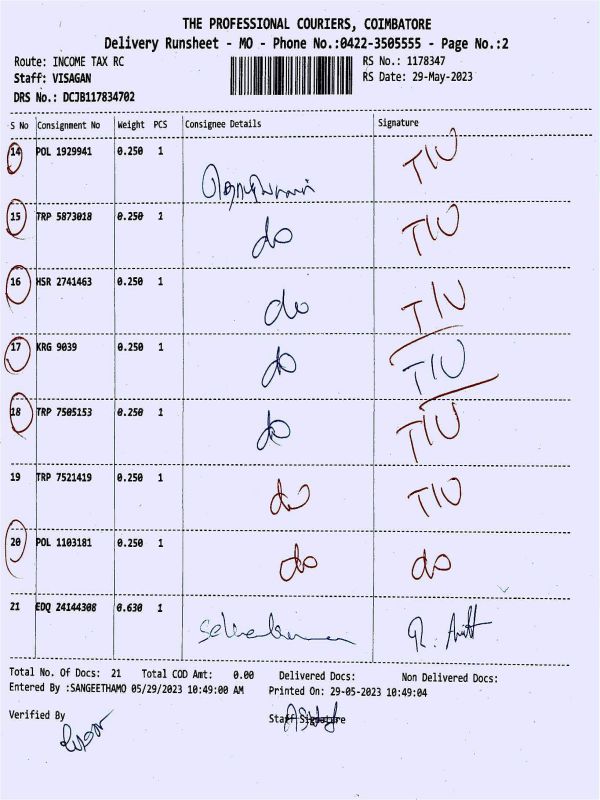 THE PROFESSIONAL COURIERS, COIMBATORE
Delivery Runsheet - MO - Phone No.:0422-3505555 - Page No.:2
Route: INCOME TAX RC RS No.: 1178347
Staff: VISAGAN RS Date: 29-May-2023
DRS No.: DCJB117834702
S No Consignment No Weight PCS Consignee Details Signature
14 POL 1929941 0.250 1 TIU
15 TRP 5873018 0.250 1 do TIU
16 HSR 2741463 0.250 1 do TIU
17 KRG 9039 0.250 1 do TIU
18 TRP 7505153 0.250 1 do TIU
19 TRP 7521419 0.250 1 do TIU
20 POL 1103181 0.250 1 do do
21 EDQ 24144308 0.630 1
Total No. Of Docs: 21 Total COD Amt: 0.00 Delivered Docs: Non Delivered Docs:
Entered By :SANGEETHAMO 05/29/2023 10:49:00 AM Printed On: 29-05-2023 10:49:04
Verified By Staff Signature